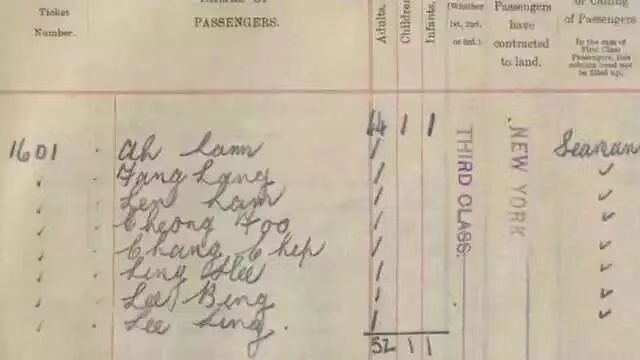 Ticket Number.
PASSENGERS.
Adults,
Children
Infants,
(Whether 1st, 2nd, or 3rd.)
Passengers have contracted to land.
or Calling of Passengers
In the case of First Class Passengers, this column need not be filled up.
44 1 1
1601 Ah Lam / Seaman
✓ Fang Lang / ✓
✓ Len Lam / ✓
✓ Cheong Foo / ✓
✓ Chang Chip / ✓
✓ Ling Hee / ✓
✓ Lee Bing / ✓
✓ Lee Ling. /
THIRD CLASS.
NEW YORK
52 1 1